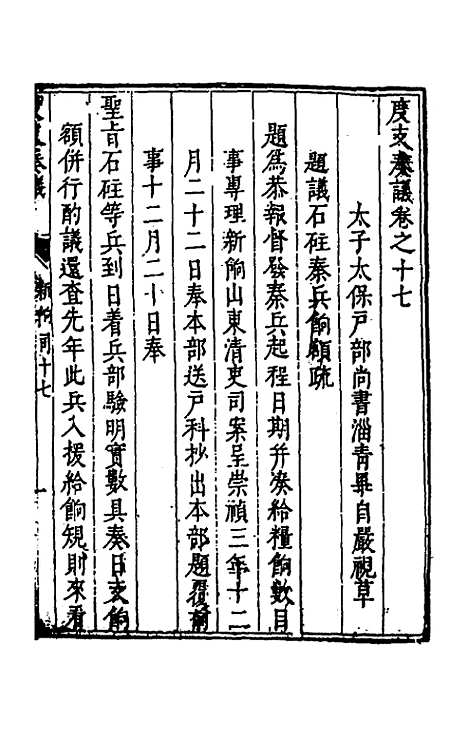 度支奏議卷之十七
太子太保戶部尚書淄青畢自嚴視草
題議石砫秦兵餉額疏
題爲恭報督發秦兵起程日期并湊給糧餉數目
事專理新餉山東清吏司案呈崇禎三年十二
月二十二日奉本部送戶科抄出本部題覆前
事十二月二十日奉
聖旨石砫等兵到日着兵部驗明實數具奏日支餉
額併行酌議還查先年此兵入援給餉規則來看
新餉司十七